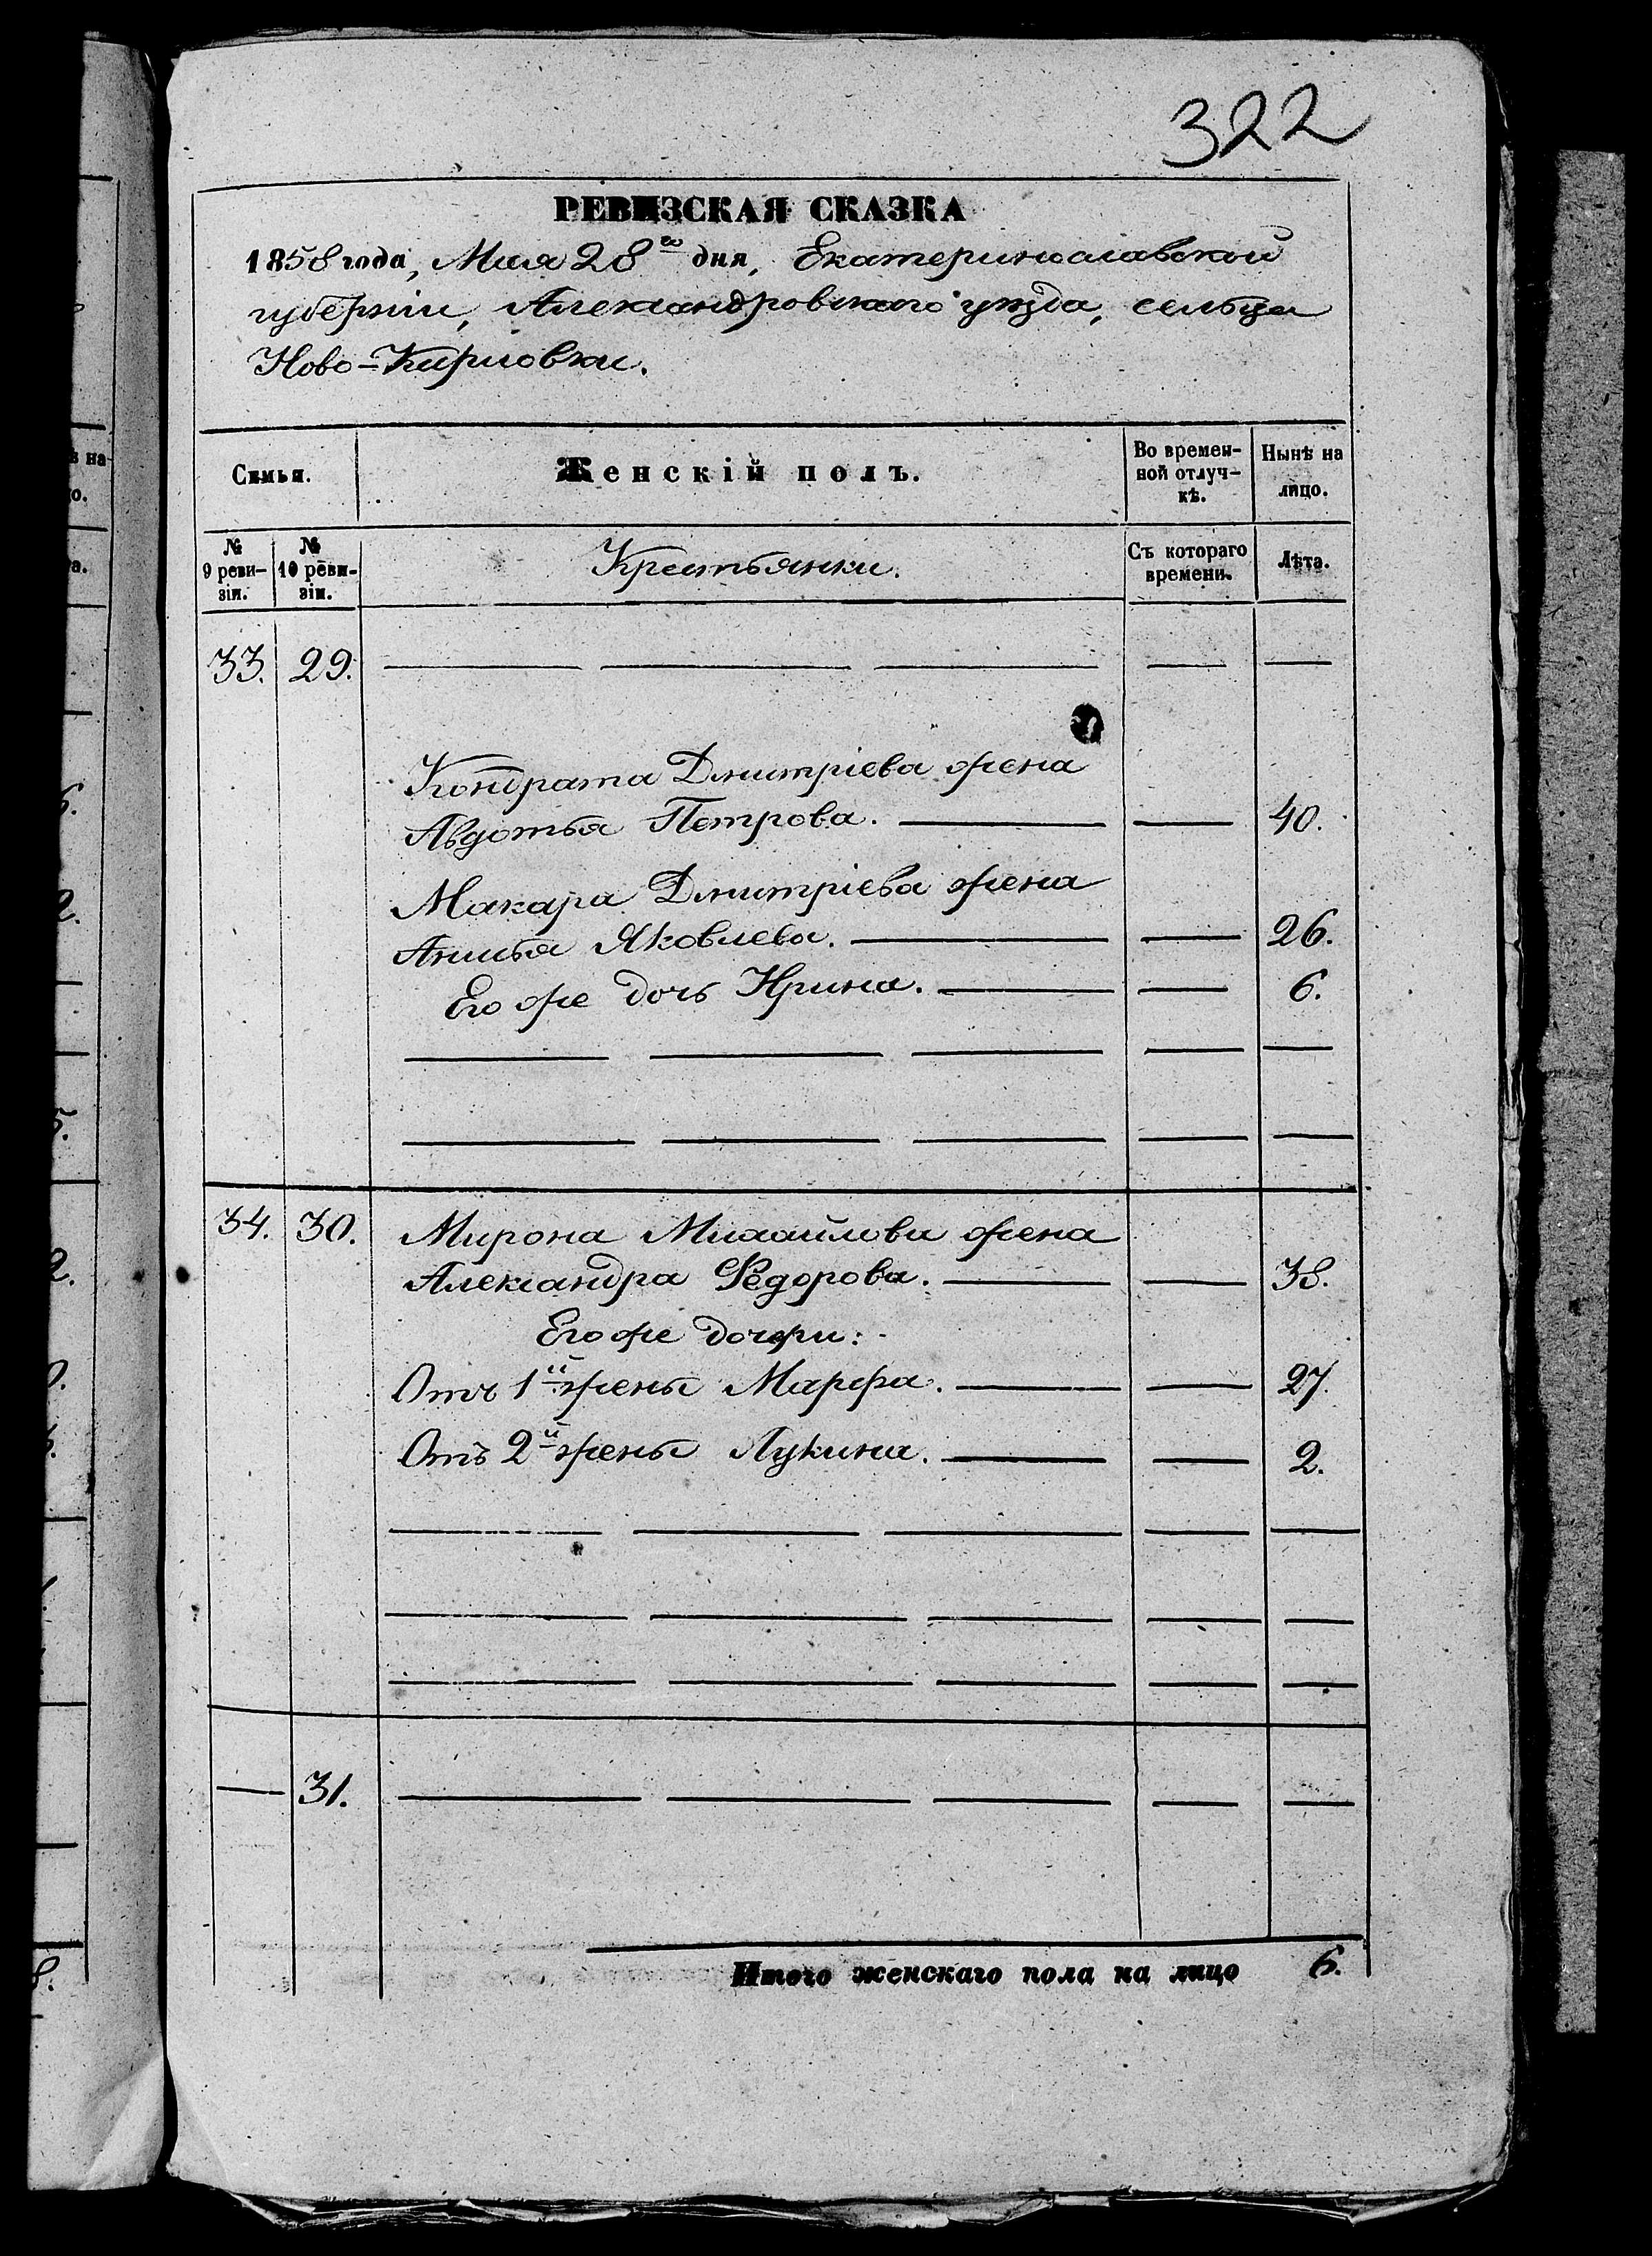 322
РЕВИЗСКАЯ СКАЗКА
1858 года, Мая 28го дня, Екатеринославской
губерніи, Александровскаго уѣзда, сельца
Ново-Кирловки.
Семья.
Женскій полъ.
Во времен-
ной отлуч-
кѣ.
Нынѣ на
лицо.
№
9 реви-
зіи.
№
10 реви-
зіи.
Крестьянки.
Съ котораго
времени.
Лѣта.
33. 29.
Кондрата Дмитріева жена
Авдотья Петрова. 40.
Макара Дмитріева жена
Анисья Яковлева. 26.
Его же дочь Ирина. 6.
34. 30. Мирона Михайлова жена
Александра Ѳедорова. 38.
Его же дочери:
Отъ 1й жены Марфа. 27.
Отъ 2й жены Лукина. 2.
31.
Итого женскаго пола на лицо 6.